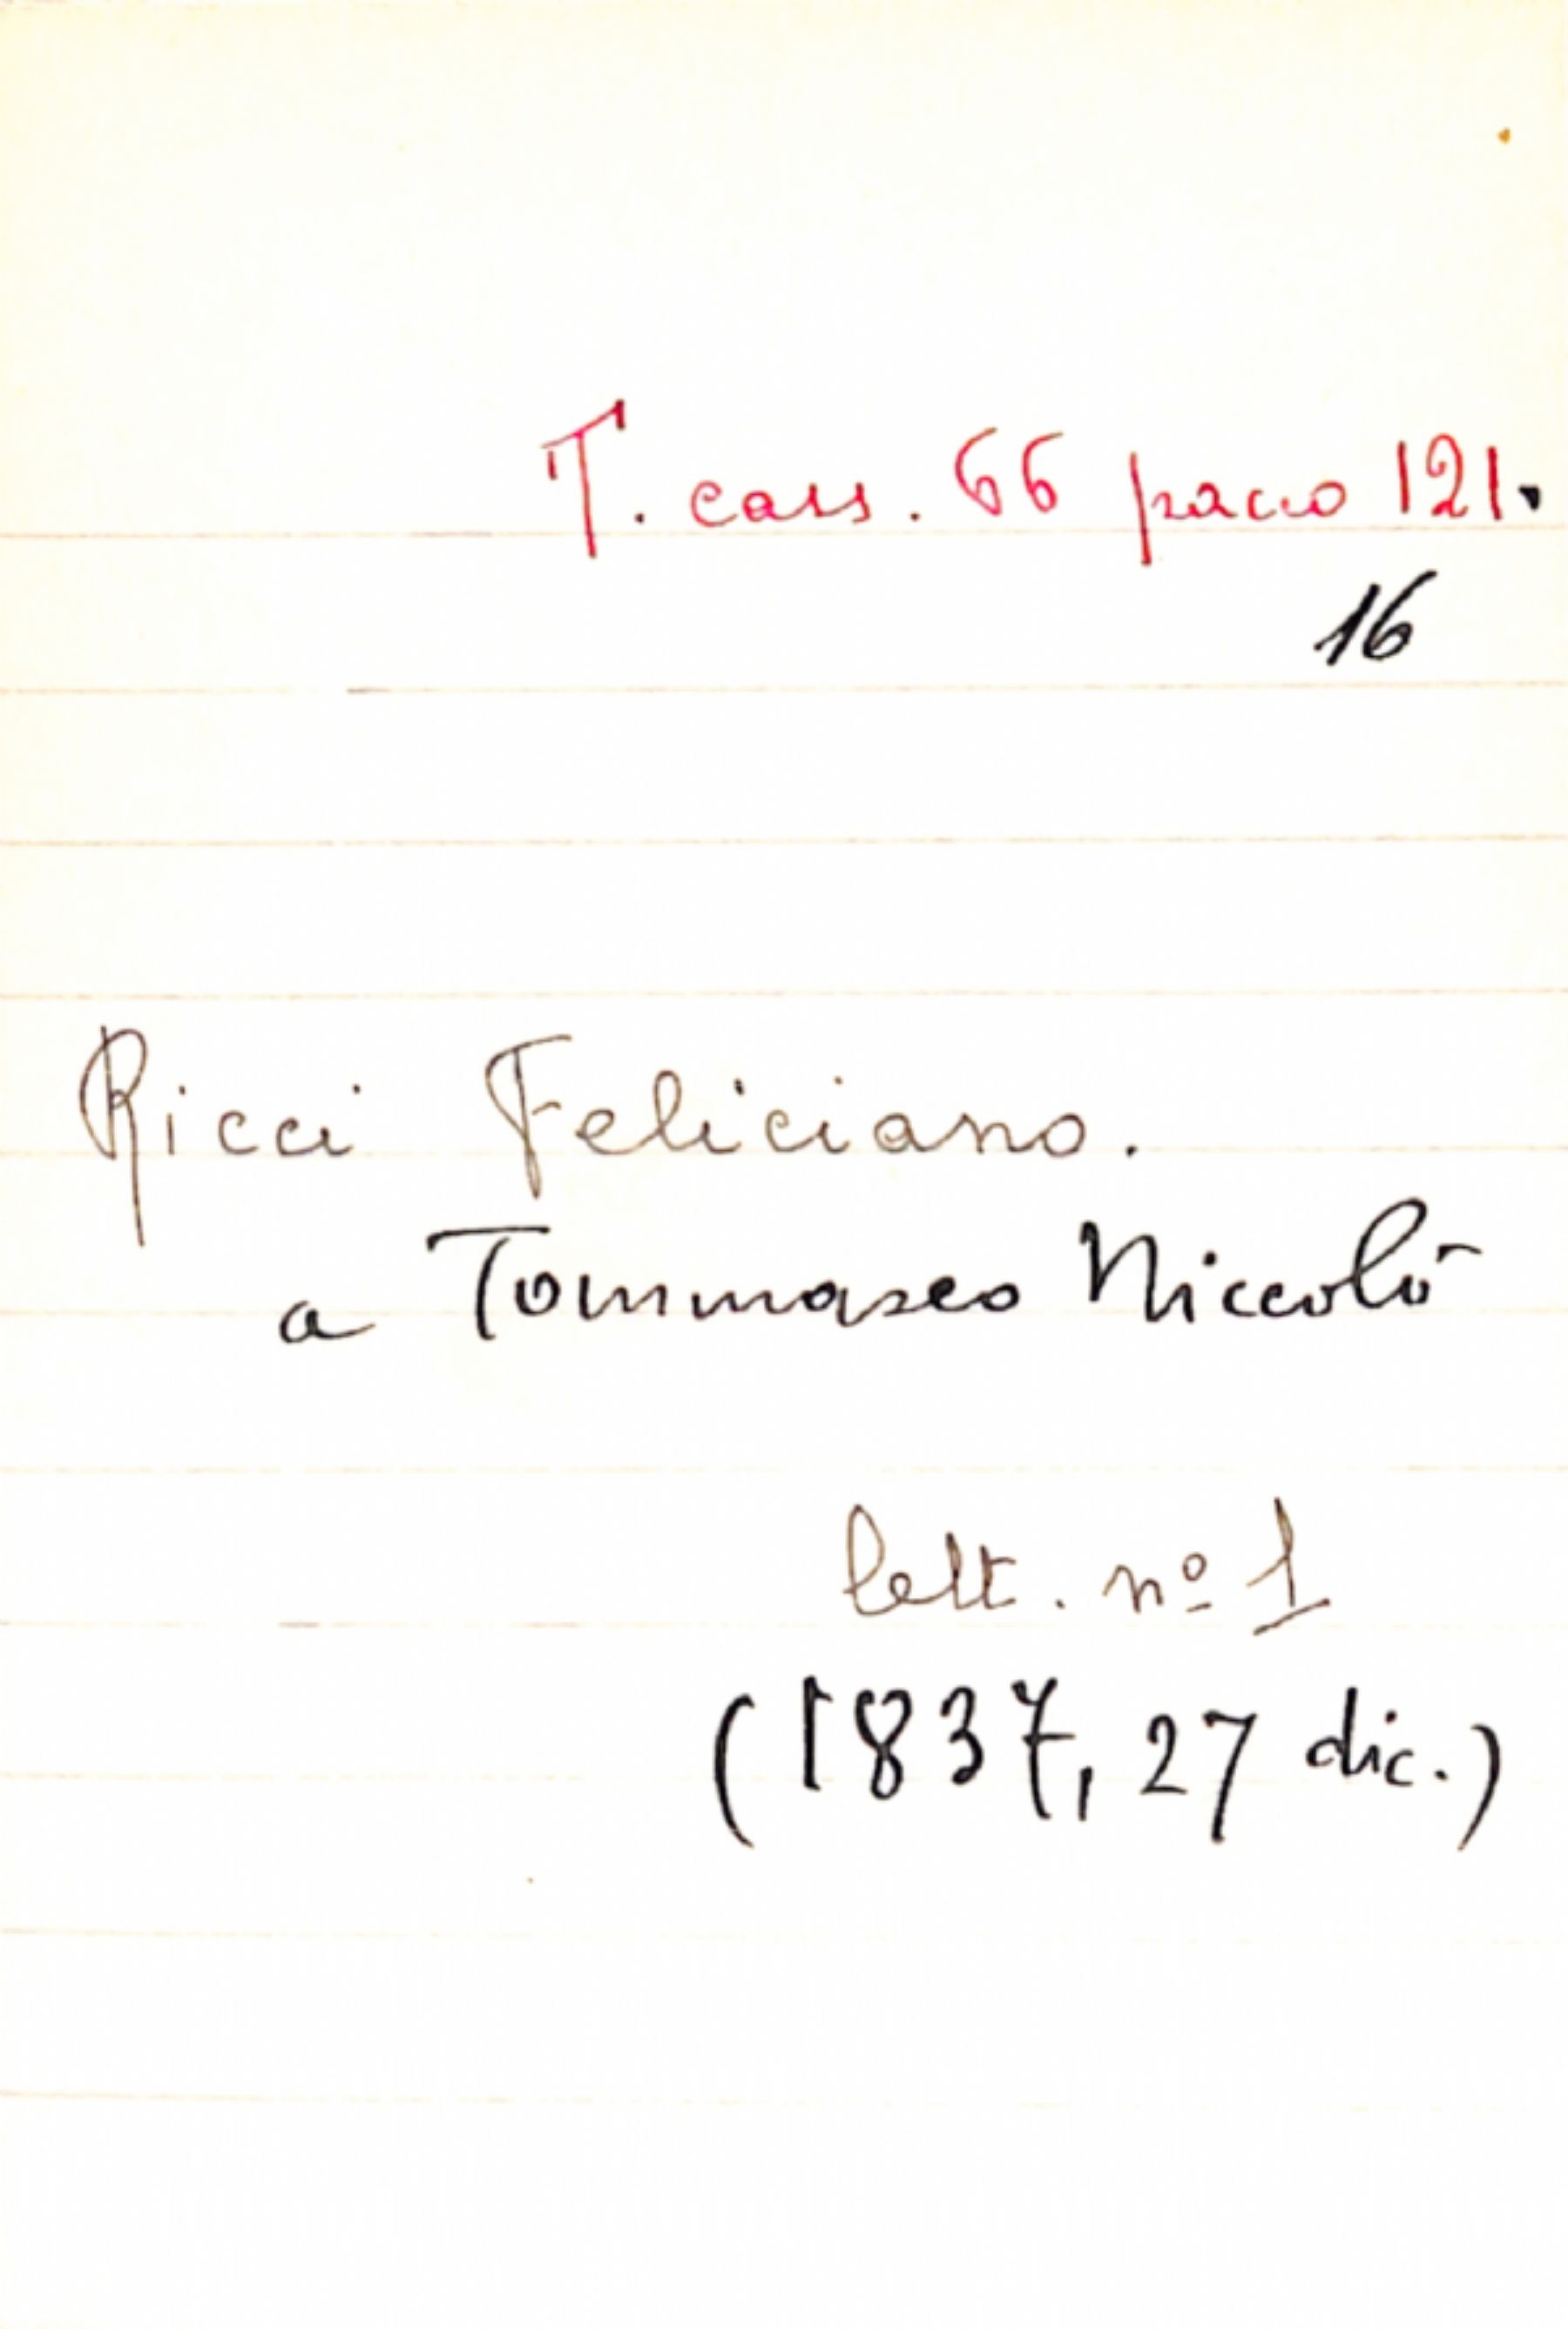 T. cass. 66 pacco 121.
16
Ricci Feliciano.
a Tommaseo Niccolò
lett. nº 1
(1837, 27 dic.)